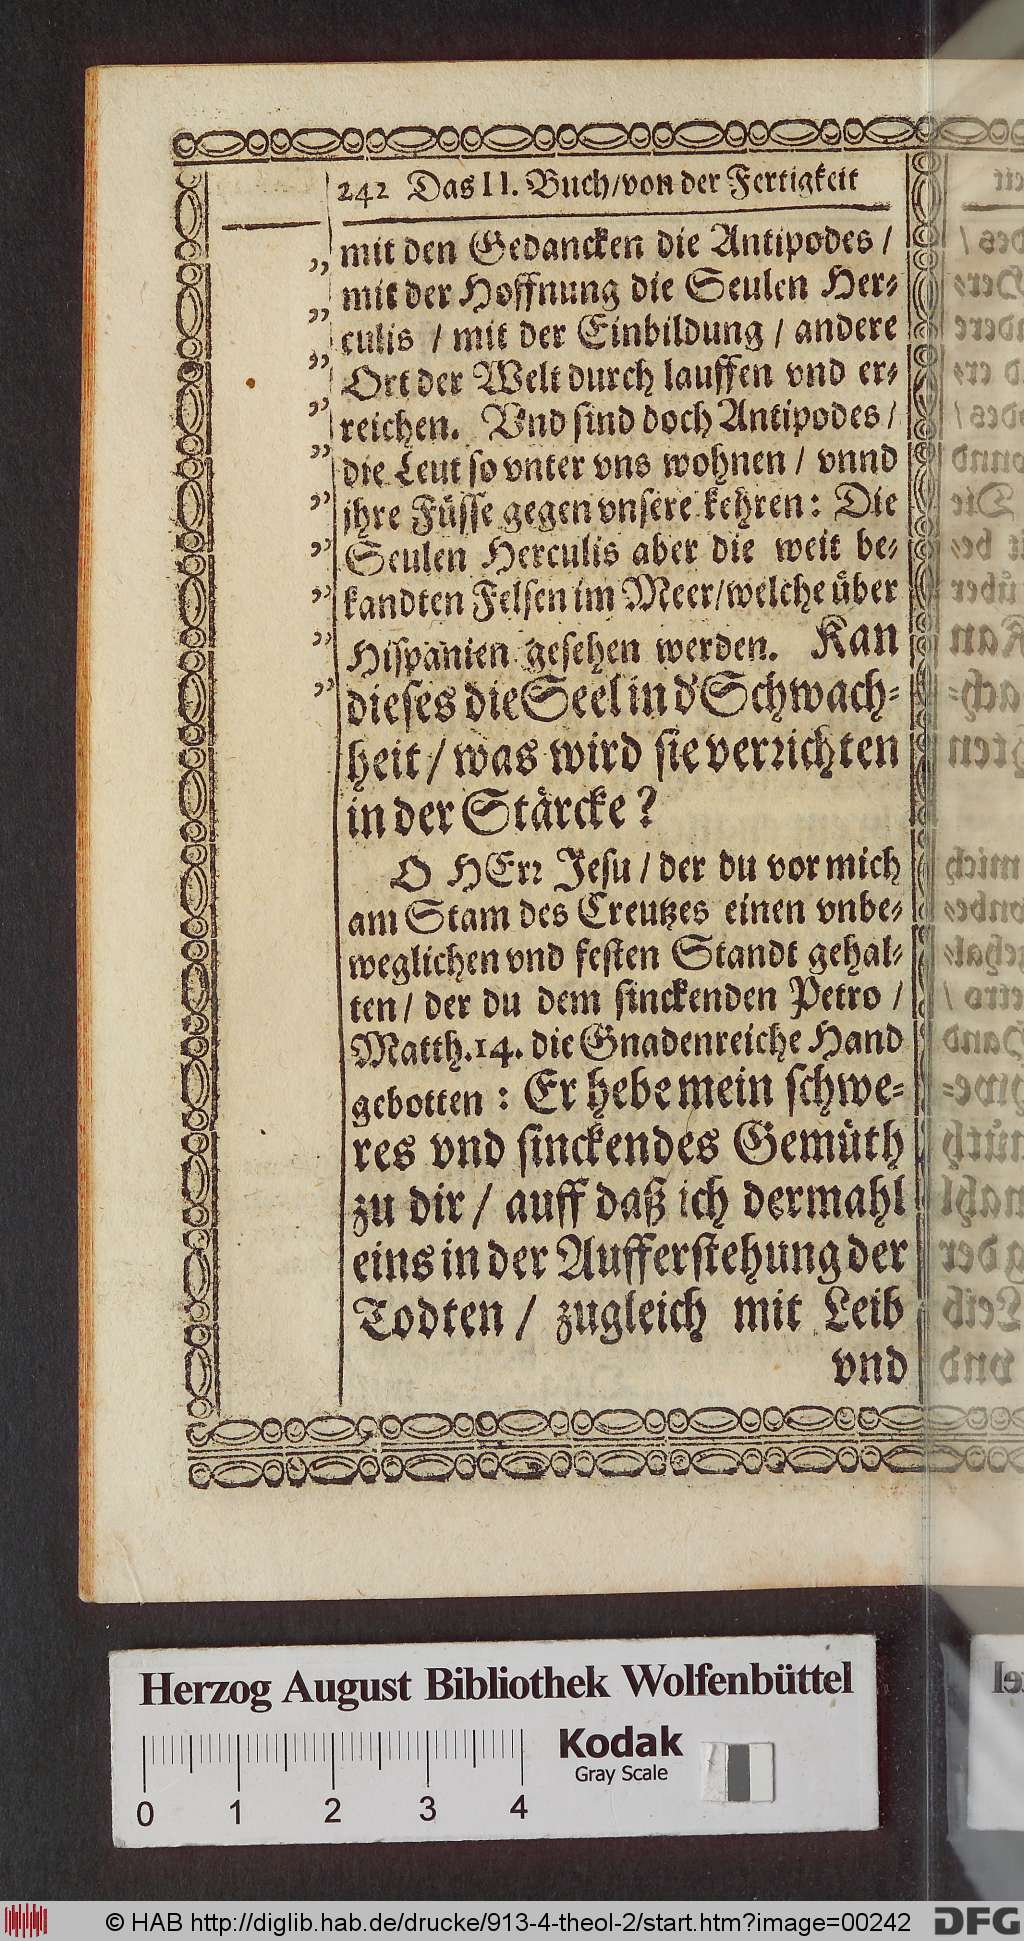 242 Das II. Buch/von der Fertigkeit
mit den Gedancken die Antipodes /
mit der Hoffnung die Seulen Her⸗
culis / mit der Einbildung / andere
Ort der Welt durch lauffen vnd er⸗
reichen. Vnd sind doch Antipodes /
die Leut so vnter vns wohnen / vnnd
jhre Füsse gegen vnsere kehren: Die
Seulen Herculis aber die weit be⸗
kandten Felsen im Meer/welche über
Hispanien gesehen werden. Kan
dieses die Seel in d' Schwach⸗
heit / was wird sie verrichten
in der Stärcke?
O HErr Jesu / der du vor mich
am Stam des Creutzes einen vnbe⸗
weglichen vnd festen Standt gehal⸗
ten / der du dem sinckenden Petro /
Matth. 14. die Gnadenreiche Hand
gebotten: Er hebe mein schwe⸗
res vnd sinckendes Gemüth
zu dir / auff daß ich dermahl
eins in der Aufferstehung der
Todten / zugleich mit Leib
vnd
Herzog August Bibliothek Wolfenbüttel
Kodak
Gray Scale
0 1 2 3 4
© HAB http://diglib.hab.de/drucke/913-4-theol-2/start.htm?image=00242
DFG